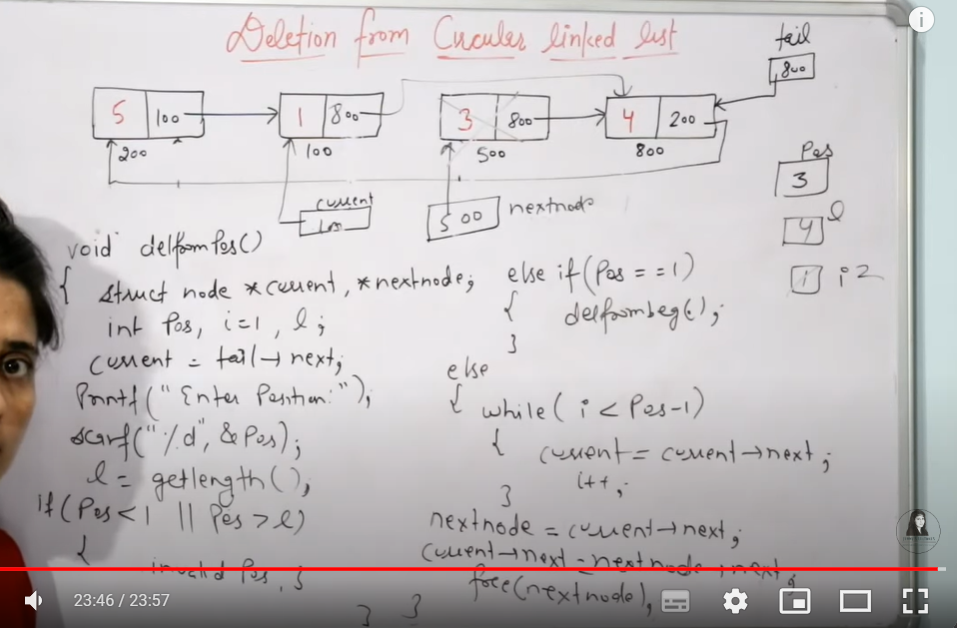 Deletion from Circular linked list
tail
800
5 100
1 800
3 800
4 200
200
100
500
800
current
100
500 nextnode
Pos
3
4 l
1 i 2
void delfromPos()
{ struct node *current, *nextnode;
int Pos, i=1, l;
current = tail→next;
Printf("Enter Position:");
scanf("%d", &Pos);
l = getlength();
if(Pos<1 || Pos>l)
{
invalid Pos, }
else if(Pos==1)
{ delfrombeg();
}
else
{ while(i < Pos-1)
{ current = current→next;
i++;
}
nextnode = current→next;
current→next = nextnode→next;
free(nextnode);
} }
23:46 / 23:57